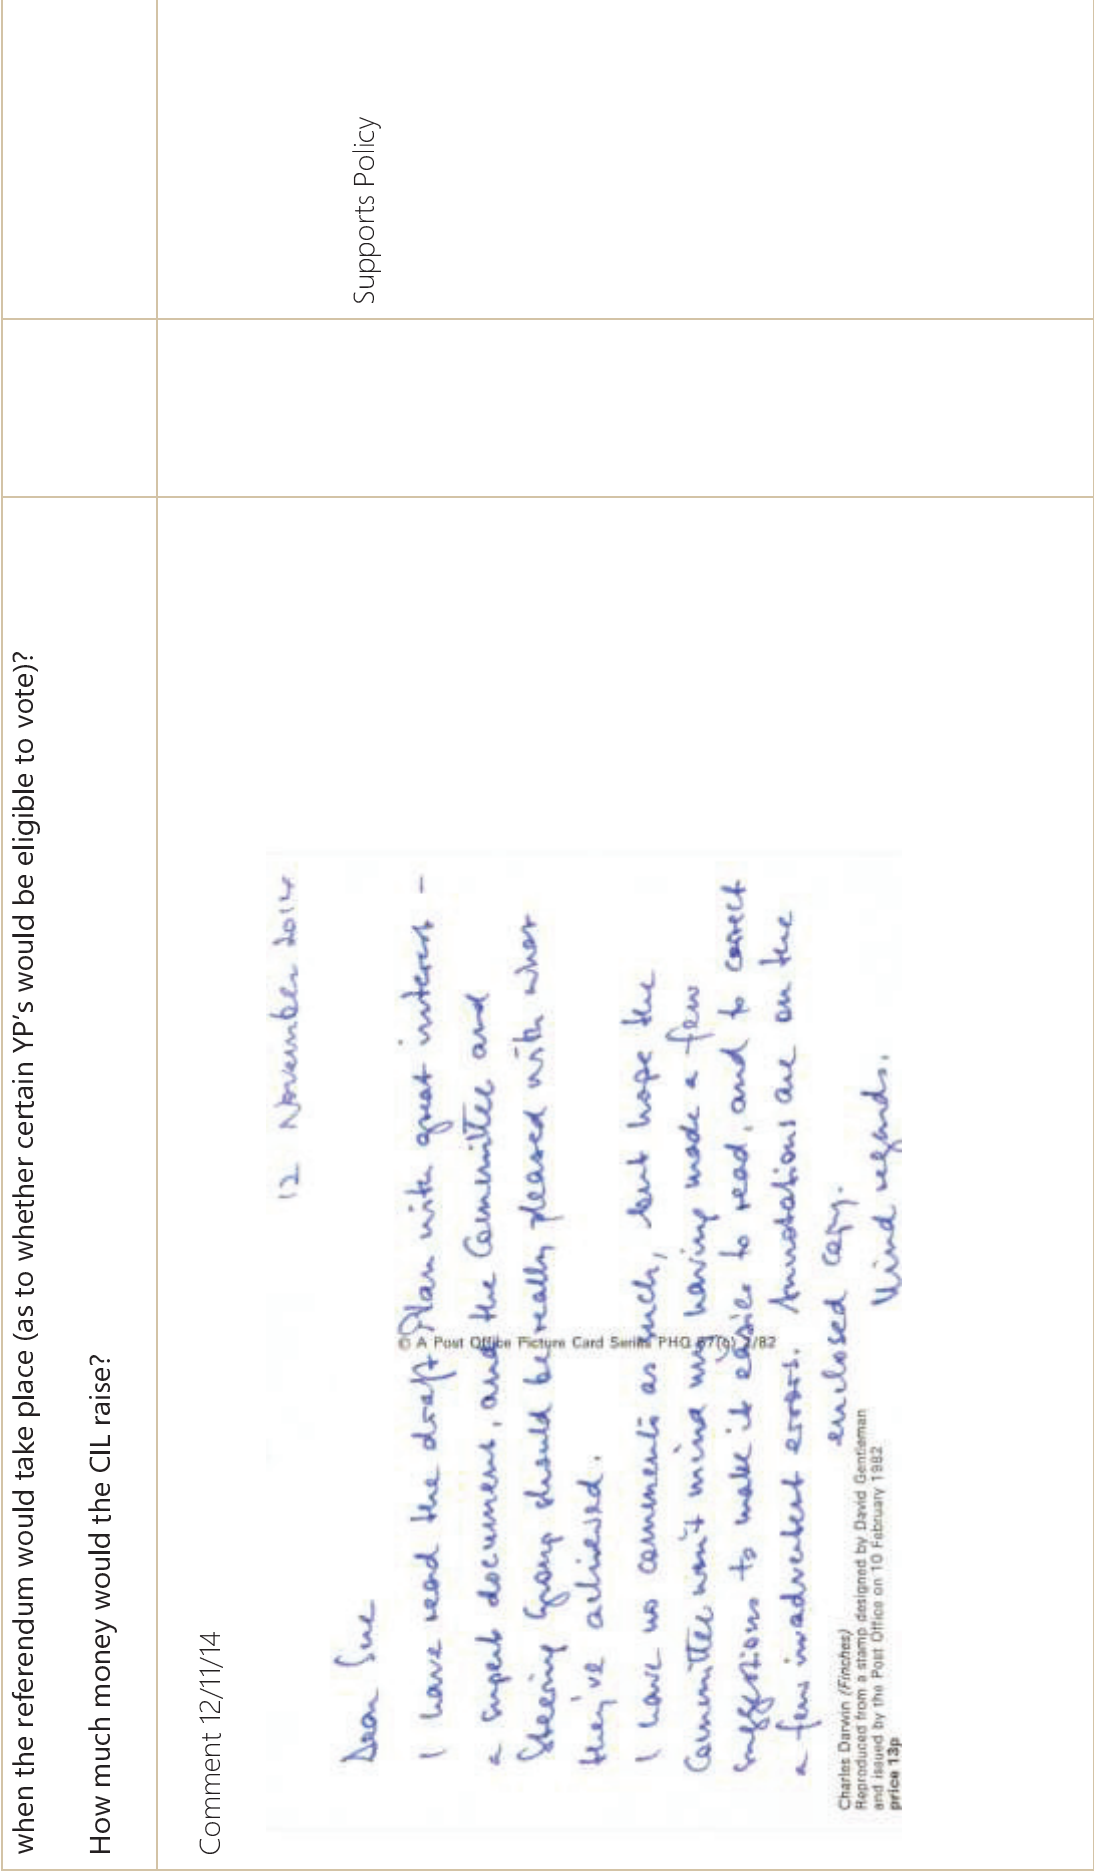 when the referendum would take place (as to whether certain YP's would be eligible to vote)?
How much money would the CIL raise?
Comment 12/11/14
12 November 2014
Dear Sue
I have read the draft Plan with great interest –
a superb document, and the Committee and
Steering Group should be really pleased with what
they've achieved.
I have no comments as such, but hope the
Committee won't mind my having made a few
suggestions to make it easier to read, and to correct
a few inadvertent errors. Annotations are on the
enclosed copy.
Kind regards.
© A Post Office Picture Card Series PHQ 57(c) 2/82
Charles Darwin (Finches)
Reproduced from a stamp designed by David Gentleman
and issued by the Post Office on 10 February 1982
price 13p
Supports Policy